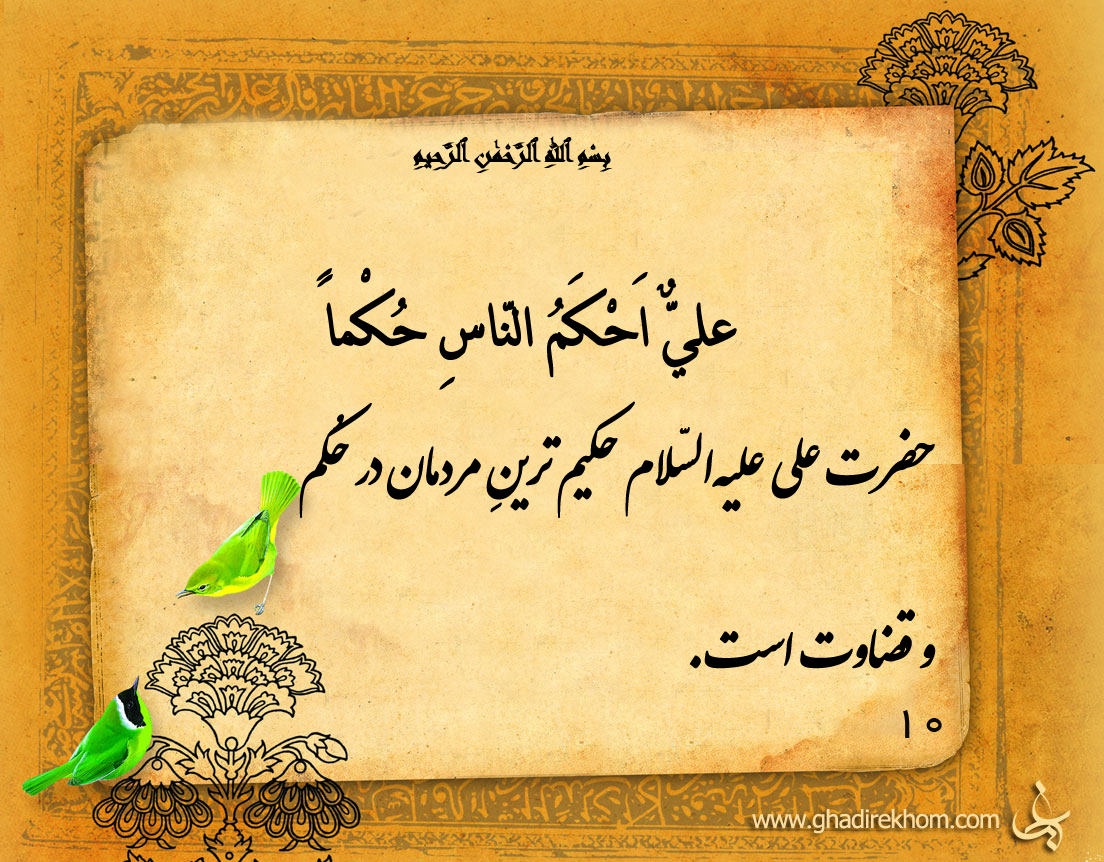 بِسْمِ ٱللَّهِ ٱلرَّحْمَٰنِ ٱلرَّحِيمِ
عليٌّ اَحْكَمُ النّاسِ حُكْماً
حضرت علی علیه‌السّلام حکیم ترینِ مردمان در حُکم
و قضاوت است.
۱۰
www.ghadirekhom.com